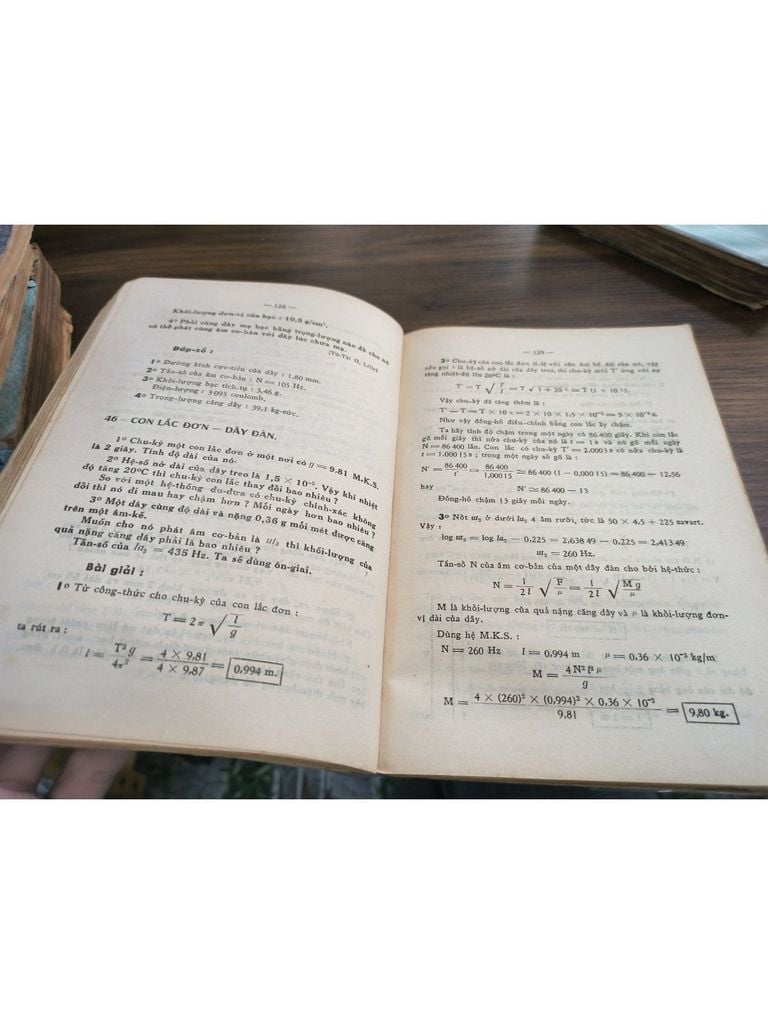 — 128 —
Khối-lượng đơn-vị của bạc : 10,5 g/cm³.
4º Phải căng dây mạ bạc bằng trọng-lượng nào để cho nó
có thể phát cùng âm cơ-bản với dây lúc chưa mạ.
(Tú-Tài II, Lille)
Đáp-số :
1º Đường kính cực-tiểu của dây : 1.80 mm.
2º Tần-số của âm cơ-bản : N = 105 Hz.
3º Khối-lượng bạc tích-tụ : 3,46 g.
Điện-lượng : 3 095 coulomb.
4º Trọng-lượng căng dây : 39,1 kg-sức.
46 – CON LẮC ĐƠN – DÂY ĐÀN.
1º Chu-kỳ một con lắc đơn ở một nơi có g = 9.81 M.K.S.
là 2 giây. Tính độ dài của nó.
2º Hệ-số nở dài của dây treo là 1,5 × 10⁻⁵. Vậy khi nhiệt
độ tăng 20ºC thì chu-kỳ con lắc thay đổi bao nhiêu ?
So với một hệ-thống đu-đưa có chu-kỳ chính-xác không
đổi thì nó đi mau hay chậm hơn ? Mỗi ngày hơn bao nhiêu ?
3º Một dây cùng độ dài và nặng 0,36 g mỗi mét được căng
trên một âm-kế.
Muốn cho nó phát âm cơ-bản là ut₃ thì khối-lượng của
quả nặng căng dây phải là bao nhiêu ?
Tần-số của la₃ = 435 Hz. Ta sẽ dùng ôn-giai.
Bài giải :
1º Từ công-thức cho chu-kỳ của con lắc đơn :
T = 2 π √ l/g
ta rút ra :
l = T² g / 4π² = 4 × 9,81 / 4 × 9,87 = 0,994 m.
— 129 —
2º Chu-kỳ của con lắc đơn tỉ.lệ với căn hai bề dài của nó, vậy
nếu gọi λ là hệ-số nở dài của dây treo, thì chu-kỳ mới T' ứng với sự
tăng nhiệt-độ lên 20ºC là :
T' = T √ l'/l = T √ 1 + 20 λ ≃ T (1 + 10 λ).
Vậy chu-kỳ đã tăng thêm là :
T' — T = T × 10 λ = 2 × 10 × 1,5 × 10⁻⁵ = 3 × 10⁻⁴ s.
Như vậy đồng-hồ điều-chỉnh bằng con lắc ấy chậm.
Ta hãy tính độ chậm trong một ngày có 86 400 giây. Khi con lắc
gõ mỗi giây thì nửa chu-kỳ của nó là t = 1 s và nó gõ mỗi ngày
N = 86 400 lần. Con lắc có chu-kỳ T' = 2,0003 s có nửa chu-kỳ là
t' = 1,000 15 s ; trong một ngày số gõ là :
N' = 86 400 / t' = 86 400 / 1,000 15 ≃ 86 400 (1 — 0,000 15) = 86 400 — 12,96
hay N' ≃ 86 400 — 13
Đồng-hồ chậm 13 giây mỗi ngày.
3º Nốt ut₃ ở dưới la₃ 4 âm rưỡi, tức là 50 × 4.5 + 225 savart.
Vậy :
log ut₃ = log la₃ — 0,225 = 2.638 49 — 0,225 = 2,413 49
ut₃ = 260 Hz.
Tần-số N của âm cơ-bản của một dây đàn cho bởi hệ-thức :
N = 1/2 l √ F/μ = 1/2 l √ M g/μ
M là khối-lượng của quả nặng căng dây và μ là khối-lượng đơn-
vị dài của dây.
Dùng hệ M.K.S. :
N = 260 Hz l = 0,994 m μ = 0,36 × 10⁻³ kg/m
M = 4 N² l² μ / g
M = 4 × (260)² × (0,994)² × 0,36 × 10⁻³ / 9.81 = 9,80 kg.